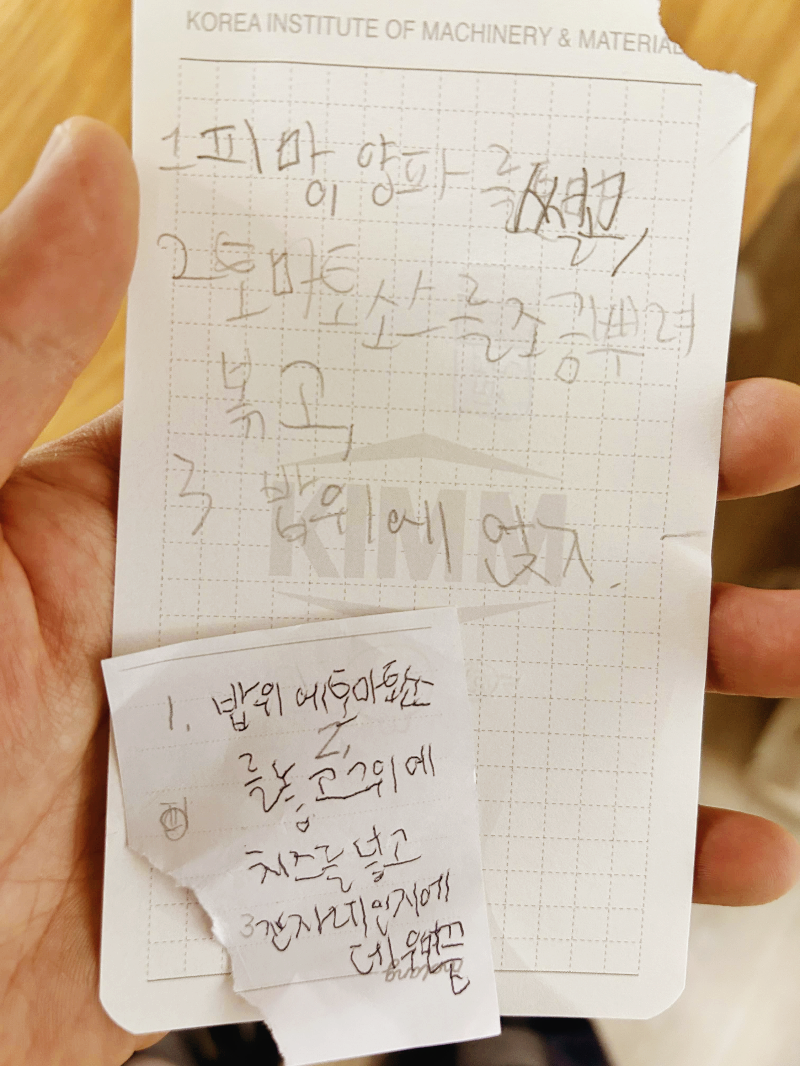 KOREA INSTITUTE OF MACHINERY & MATERIAL
1 피망이 양파를 썰고,
2 토마토 소스를 조금 뿌려
볶고,
3 밥 위에 얹고.
KIMM
1. 밥위에 토마토소스
2.
를 넣고 그위에
치즈를 넣고
3 전자레인지에